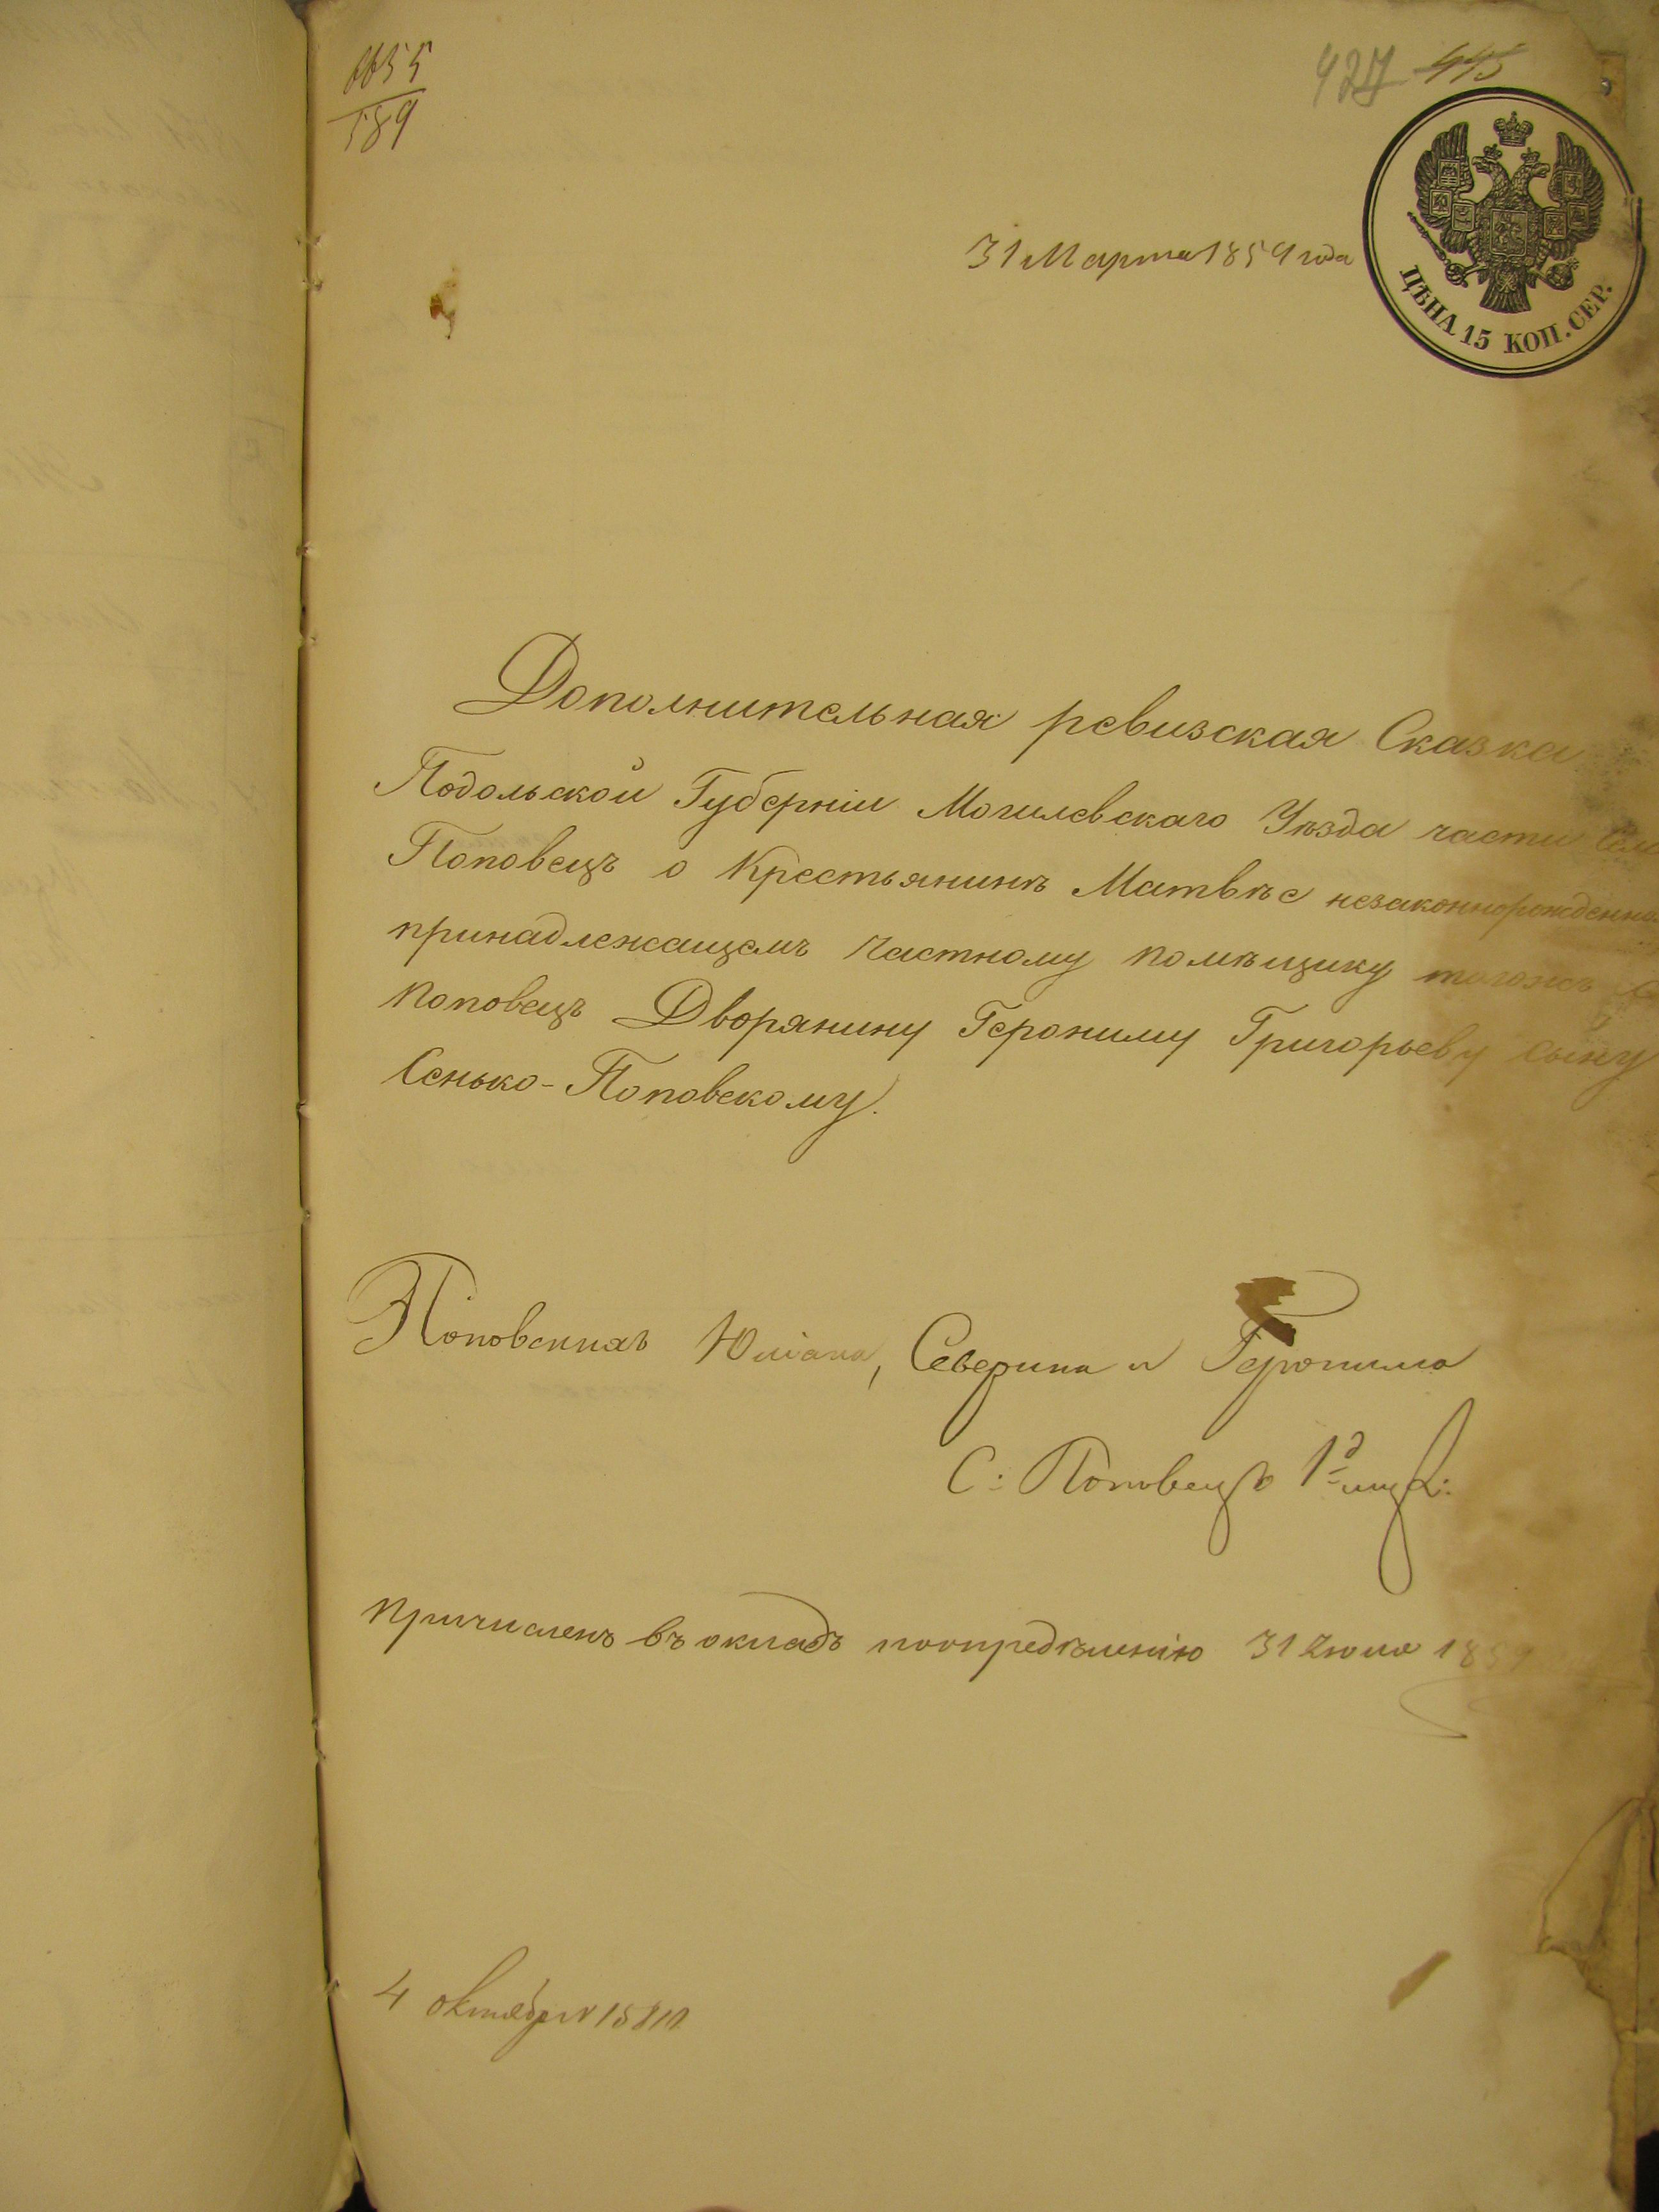 6655
589
427 445
31 Марта 1859 года
ЦѢНА 15 КОП. СЕР.
Дополнительная ревизская Сказка
Подольской Губерніи Могилевскаго Уѣзда части Села
Поповецъ о Крестьянинѣ Матвѣе незаконнорожденно
принадлежащемъ частному помѣщику тогожъ
поповецъ Дворянину Герониму Григорьеву сыну
Сенько-Поповскому.
Поповскихъ Юліана, Северина и Геронима
С: Поповецъ 1
Причисленъ въ окладъ поопредѣленію 31 Іюля 1859
4 октября